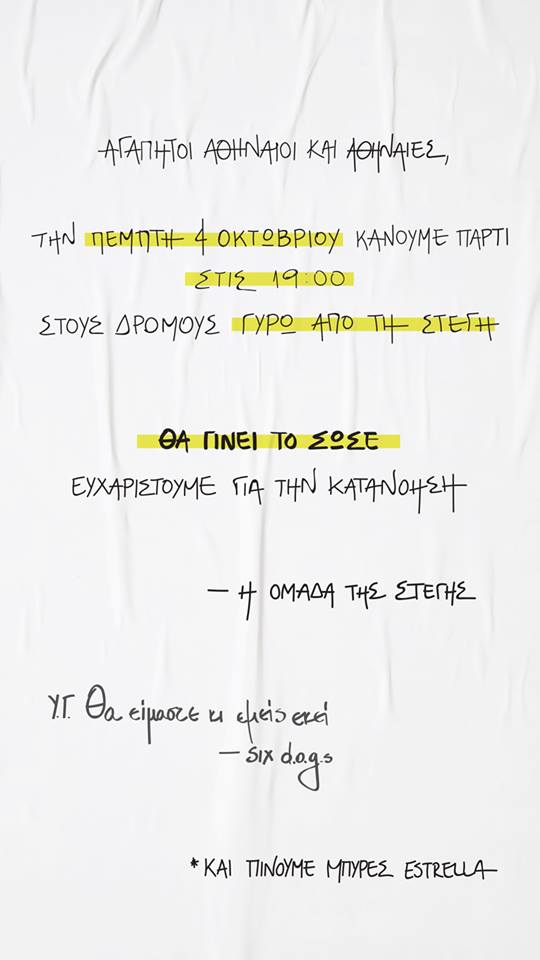 ΑΓΑΠΗΤΟΙ ΑΘΗΝΑΙΟΙ ΚΑΙ ΑΘΗΝΑΙΕΣ,
ΤΗΝ ΠΕΜΠΤΗ 4 ΟΚΤΩΒΡΙΟΥ ΚΑΝΟΥΜΕ ΠΑΡΤΙ
ΣΤΙΣ 19:00
ΣΤΟΥΣ ΔΡΟΜΟΥΣ ΓΥΡΩ ΑΠΟ ΤΗ ΣΤΕΓΗ
ΘΑ ΓΙΝΕΙ ΤΟ ΣΩΣΕ
ΕΥΧΑΡΙΣΤΟΥΜΕ ΓΙΑ ΤΗΝ ΚΑΤΑΝΟΗΣΗ
– Η ΟΜΑΔΑ ΤΗΣ ΣΤΕΓΗΣ
Υ.Γ. Θα είμαστε κι εμείς εκεί
– six d.o.g.s
*ΚΑΙ ΠΙΝΟΥΜΕ ΜΠΥΡΕΣ ESTRELLA